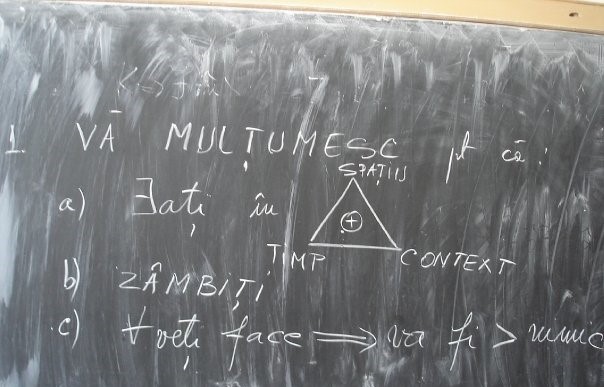 1. VĂ MULȚUMESC pt că:
SPAȚIU
a) ∃ați în
+
TIMP CONTEXT
b) ZÂMBIȚI
c) ∀ veți face ⟹ va fi > nimic